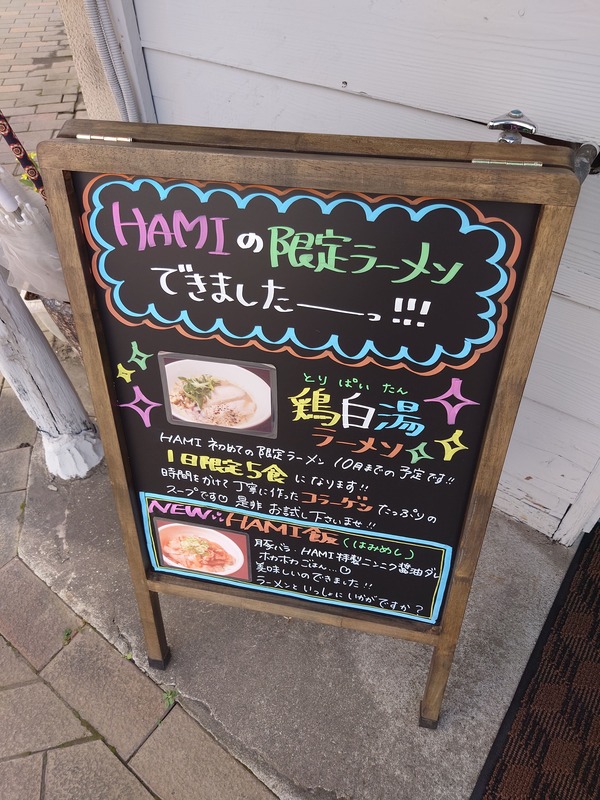 HAMIの限定ラーメン
できましたーーっ!!!
とり ぱい たん
鶏白湯
ラーメン
HAMI 初めての限定ラーメン 10月までの予定です!!
1日限定5食 になります!!
時間をかけ丁寧に作った コラーゲン たっぷりの
スープです♡ 是非 お試し下さいませ!!
NEW!! HAMI飯 (はみめし)
豚バラ・HAMI特製ニンニク醤油ダレ
ホカホカごはん…♡
美味しいのできました!!
ラーメンといっしょに いかがですか?